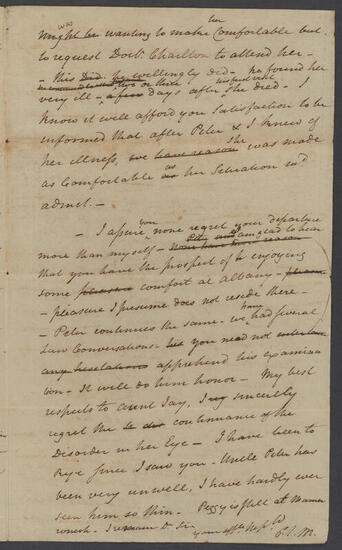 was her
might be wanting to make ^ Comfortable but
to request Doct. Charlton to attend her –
– this Did. he willingly did – he found her
very ill – a few days after she died – I
know it will afford you Satisfaction to be
informed that after Peter & I knew of
her illness, we have reason she was made
as Comfortable as her Situation wd
admit. –
– I assure you none regret your departure
more than myself – and am glad to hear
that you have the prospect of enjoying
some pleasure comfort at albany –
– pleasure I presume does not reside there –
– Peter continues the same – we have had several
Law Conversations – you need not
apprehend his examina
tion – It will do him honor – My best
respects to aunt Jay, I sincerely
regret the continuance of the
Disorder in her Eye – I have been to
Rye since I saw you – Uncle Peter has
been very unwell, I have hardly ever
seen him so thin – Peggy is still at Mama
roneck – I remain Dr Sir
P. J. M.